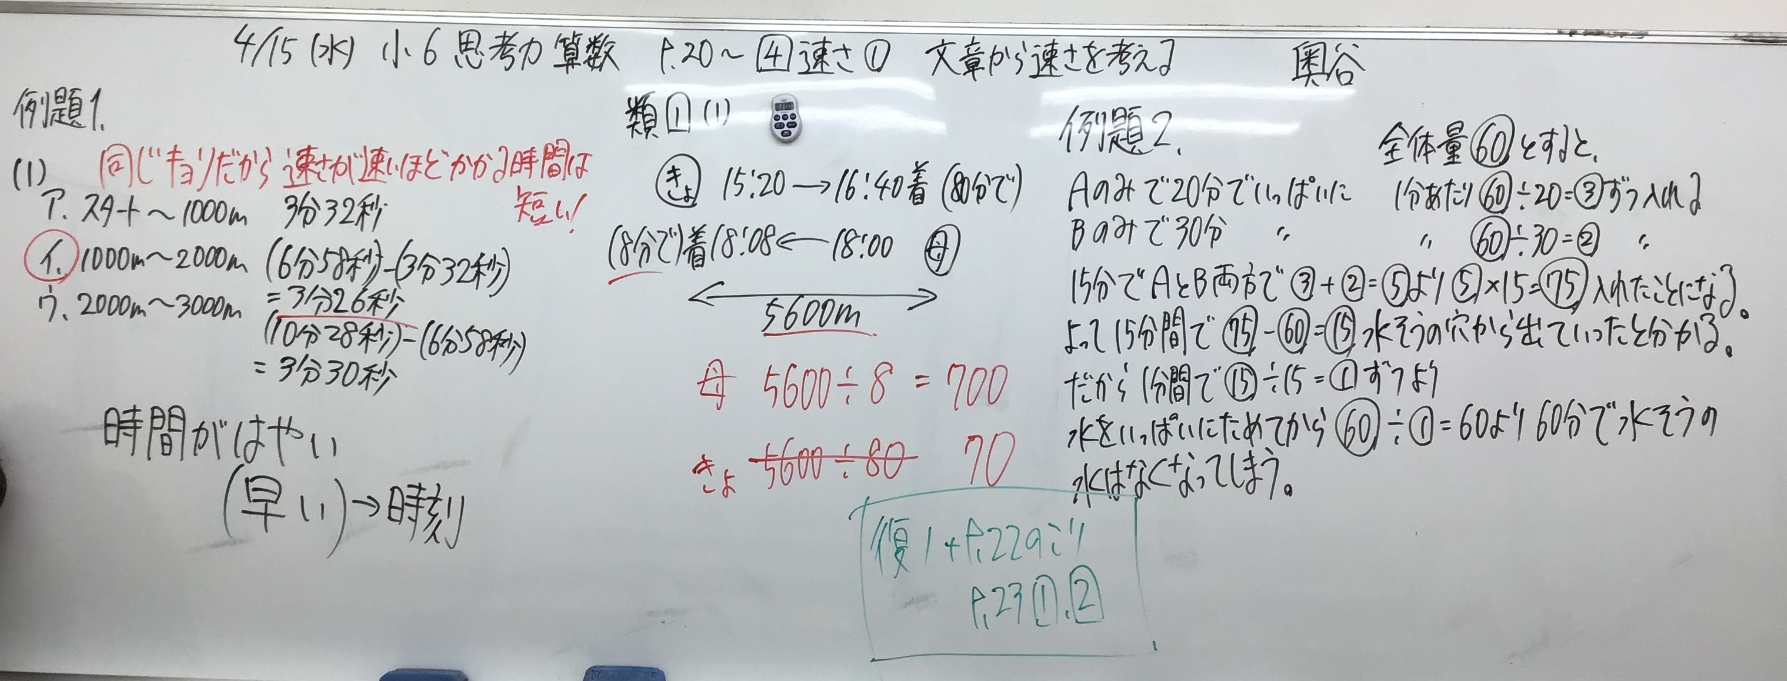 4/15(水) 小6 思考力 算数 P.20～ 4 速さ① 文章から速さを考える 奥谷
例題1.
(1) 同じキョリだから速さが速いほどかかる時間は
短い!
ア. スタート～1000m 3分32秒
イ. 1000m～2000m (6分58秒)-(3分32秒)
=3分26秒
ウ. 2000m～3000m (10分28秒)-(6分58秒)
=3分30秒
時間がはやい
(早い)→時刻
類1(1)
きよ 15:20→16:40着(80分で)
(8分で)着18:08←18:00 母
5600m
母 5600÷8=700
きよ 5600÷80 70
復1+P.22のこり
P.23 1.2
例題2.
全体量60とすると、
Aのみで20分でいっぱいに 1分あたり60÷20=③ずつ入れる
Bのみで30分 〃 〃 60÷30=② 〃
15分でAとB両方で③+②=⑤より⑤×15=75入れたことになる。
よって15分間で75-60=⑮水そうの穴から出ていったと分かる。
だから1分間で⑮÷15=①ずつより
水をいっぱいにためてから60÷①=60より60分で水そうの
水はなくなってしまう。